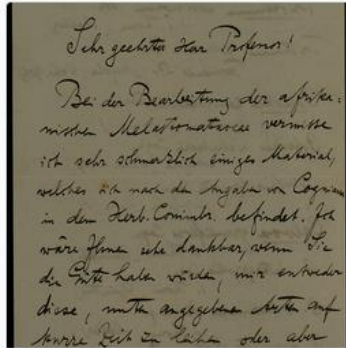 Sehr geehrter Herr Professor!
Bei der Bearbeitung der afrika-
nischen Melastomataceae vermisse
ich sehr schmerzlich einiges Material,
welches sich nach den Angaben von Cogniaux
in dem Herb. Conimbr. befindet. Ich
wäre Ihnen sehr dankbar, wenn Sie
die Güte haben würden, mir entweder
diese, unten angegebenen Arten auf
kurze Zeit zu leihen oder aber